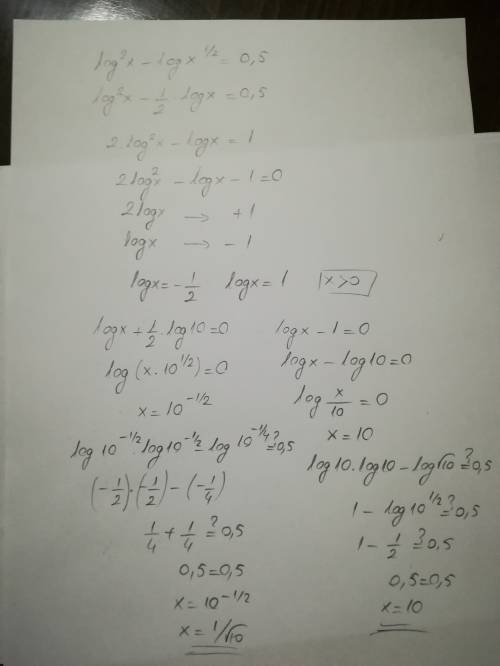 log²x - log x^1/2 = 0,5
log²x - 1/2 · logx = 0,5
2·log²x - logx = 1
2log²x - logx - 1 = 0
2logx → +1
logx → -1
logx = -1/2 logx = 1 x>0
logx + 1/2 · log10 = 0
log(x·10^1/2) = 0
x = 10^-1/2
log10^-1/2 · log10^-1/2 - log10^-1/4 ?= 0,5
(-1/2)·(-1/2) - (-1/4)
1/4 + 1/4 ?= 0,5
0,5 = 0,5
x = 10^-1/2
x = 1/√10
logx - 1 = 0
logx - log10 = 0
log x/10 = 0
x = 10
log10·log10 - log√10 ?= 0,5
1 - log10^1/2 ?= 0,5
1 - 1/2 ?= 0,5
0,5 = 0,5
x = 10